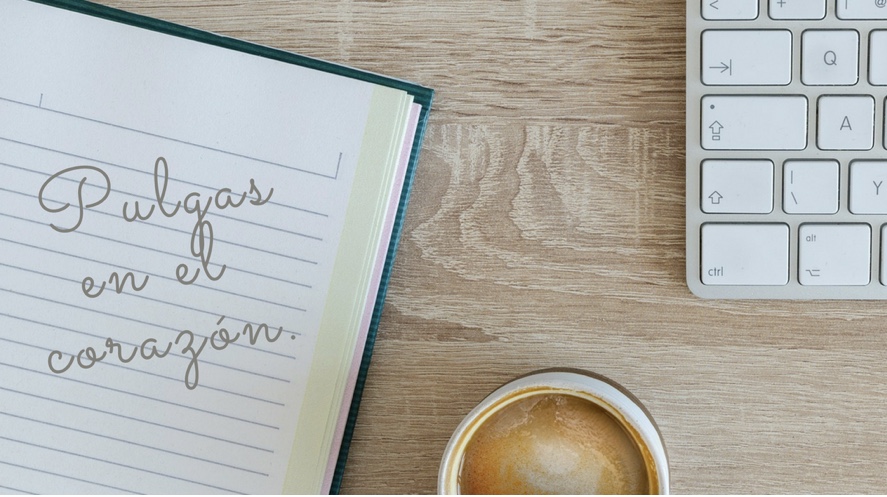 Pulgas
en el
corazón.
< + | @
Q
A
| \ Y
ctrl alt